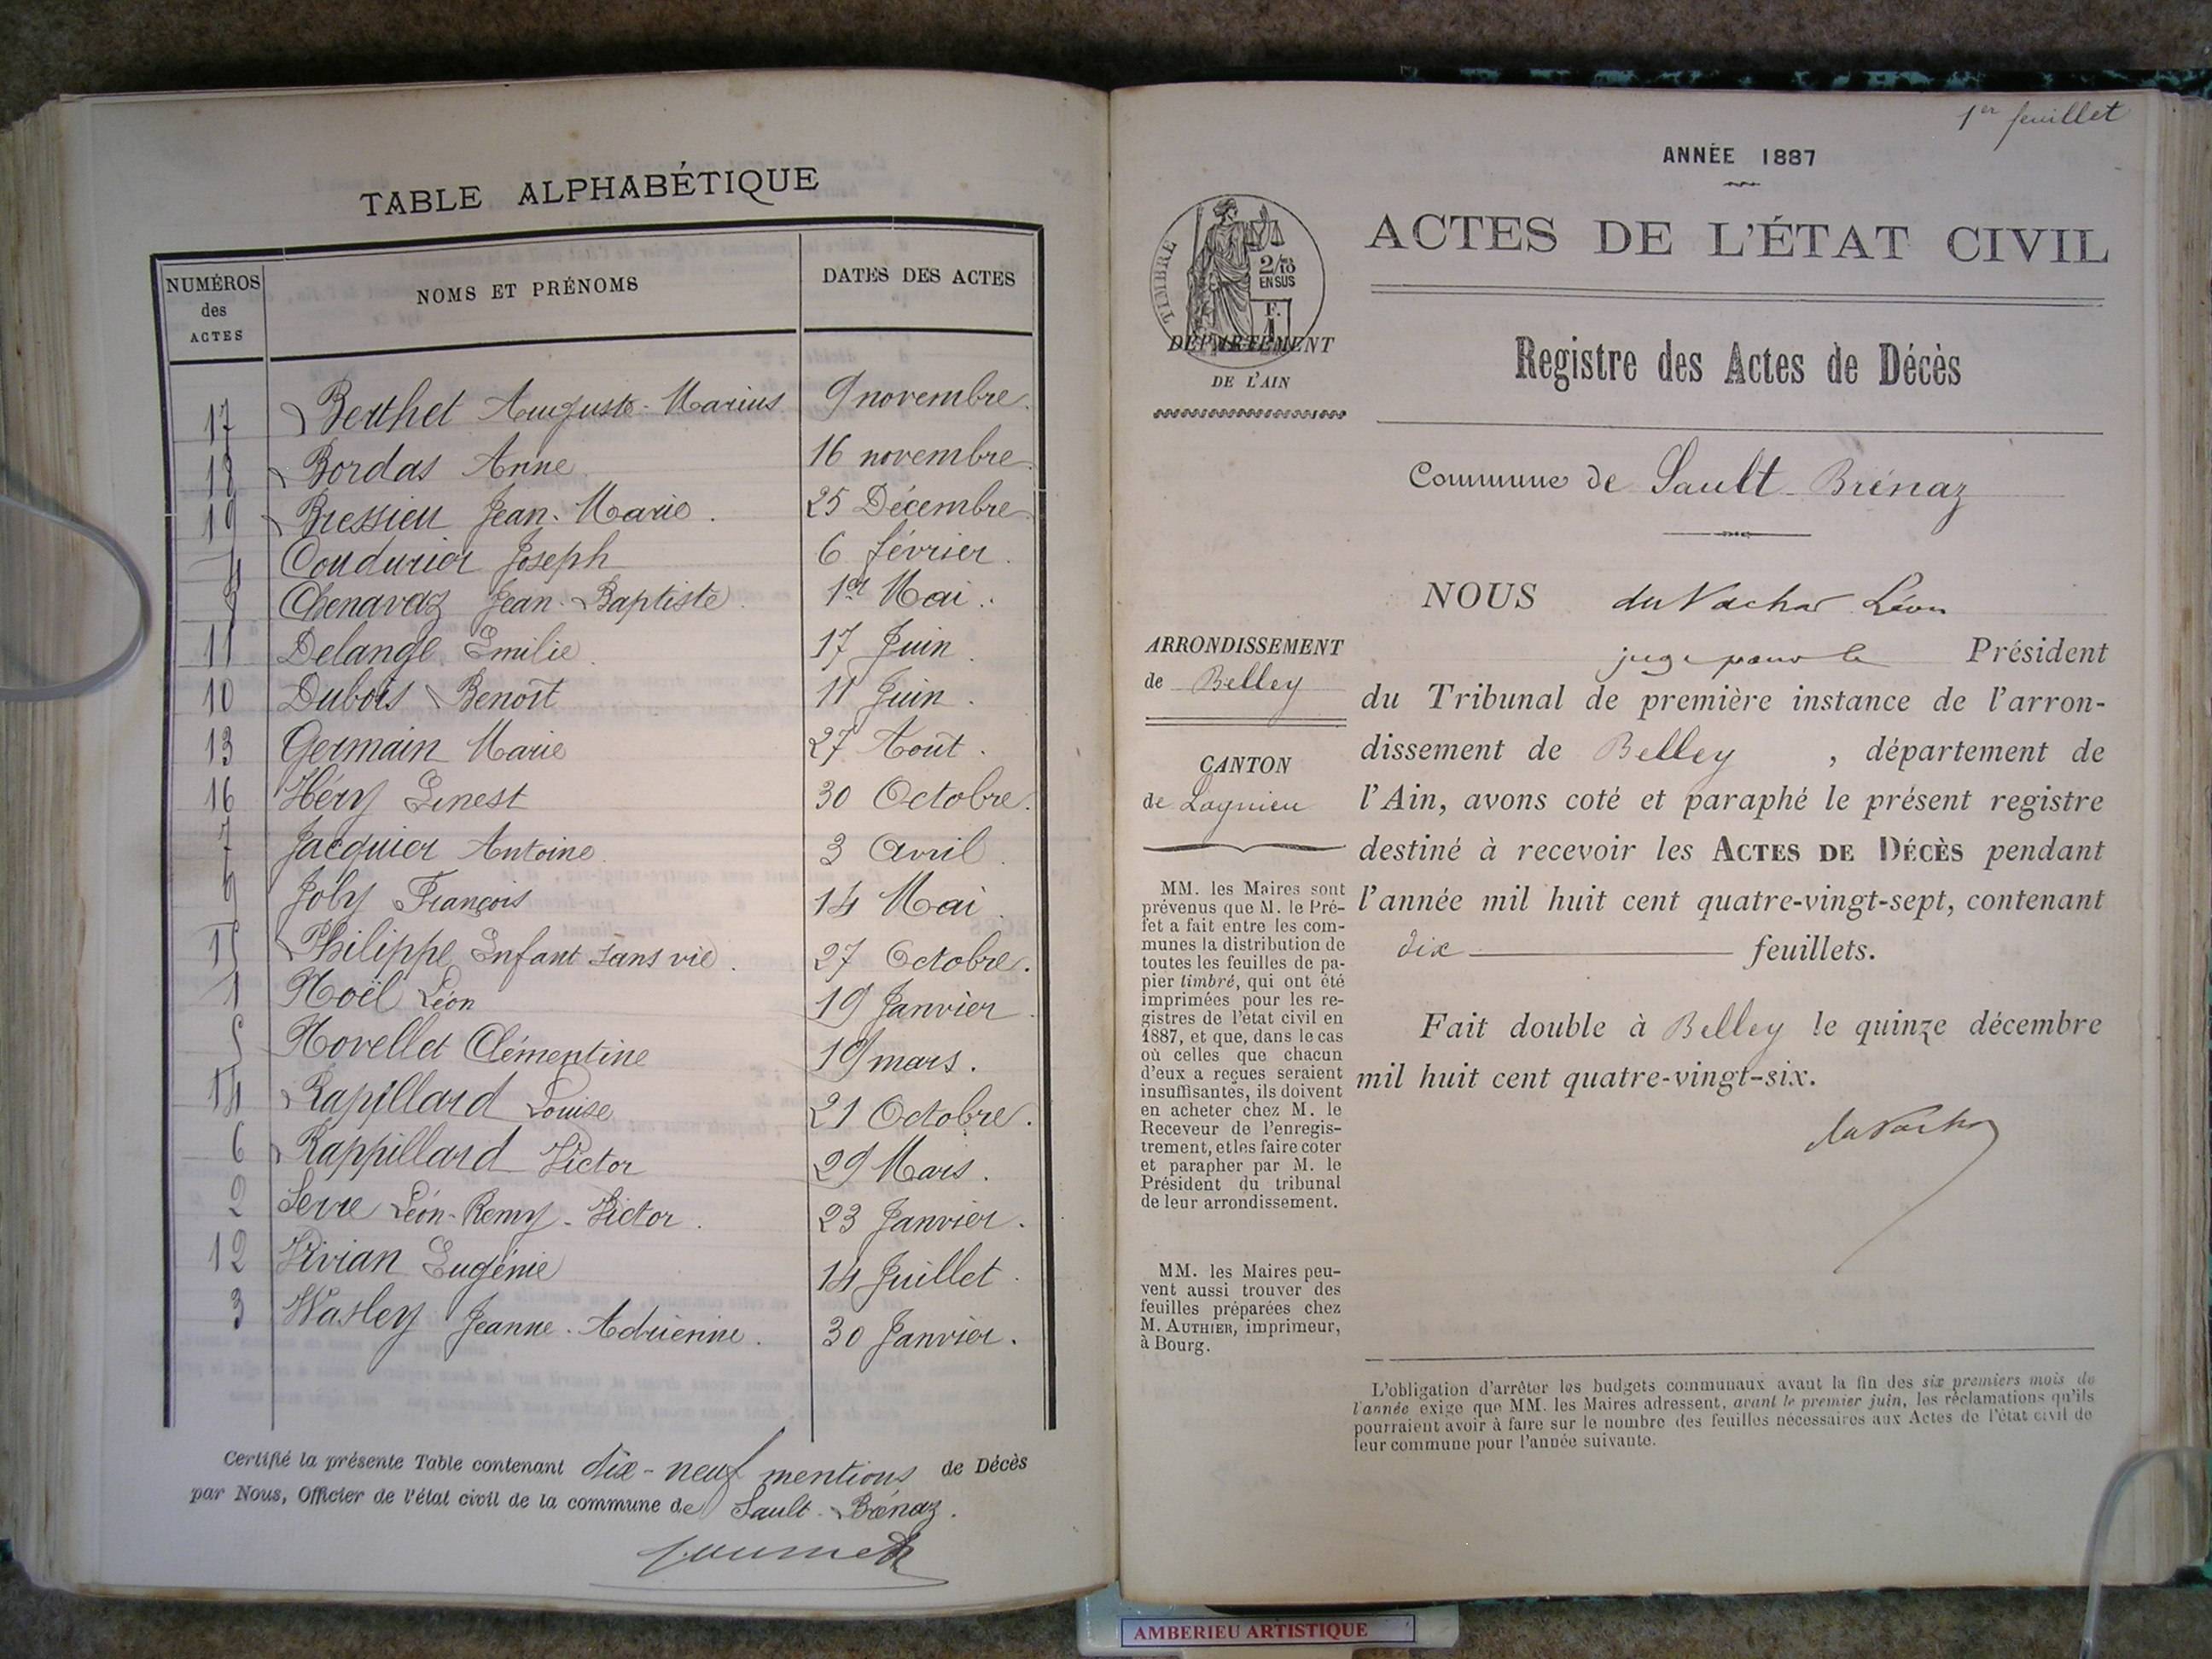 TABLE ALPHABÉTIQUE
NUMÉROS des ACTES NOMS ET PRÉNOMS DATES DES ACTES
17 Berthet Auguste-Marius 9 novembre.
18 Bordas Anne 16 novembre.
19 Bressieu Jean-Marie. 25 Décembre.
4 Coudurier Joseph 6 février.
8 Chenavaz Jean-Baptiste. 1er Mai.
11 Delange Emilie. 17 Juin.
10 Dubois Benoît 11 Juin.
13 Germain Marie 27 Août.
16 Héry Ernest 30 Octobre.
7 Jacquier Antoine. 3 Avril.
9 Joly François 14 Mai.
15 Philippe Enfant sans vie. 27 Octobre.
1 Noël Léon 19 Janvier.
5 Novellet Clémentine 19 mars.
14 Rapillard Louise 21 Octobre.
6 Rappillard Victor 29 Mars.
2 Serve Léon-Remy-Victor. 23 Janvier.
12 Vivian Eugénie 14 Juillet.
3 Wasley Jeanne-Adrienne. 30 Janvier.
Certifié la présente Table contenant dix-neuf mentions de Décès
par Nous, Officier de l'état civil de la commune de Sault-Brénaz.
1er feuillet
ANNÉE 1887
ACTES DE L'ÉTAT CIVIL
TIMBRE
2/10
EN SUS
F.
1
DÉPARTEMENT
DE L'AIN
Registre des Actes de Décès
Commune de Sault-Brénaz
ARRONDISSEMENT
de Belley
CANTON
de Lagnieu
MM. les Maires sont
prévenus que M. le Pré-
fet a fait entre les com-
munes la distribution de
toutes les feuilles de pa-
pier timbré, qui ont été
imprimées pour les re-
gistres de l'état civil en
1887, et que, dans le cas
où celles que chacun
d'eux a reçues seraient
insuffisantes, ils doivent
en acheter chez M. le
Receveur de l'enregis-
trement, et les faire coter
et parapher par M. le
Président du tribunal
de leur arrondissement.
MM. les Maires peu-
vent aussi trouver des
feuilles préparées chez
M. AUTHIER, imprimeur,
à Bourg.
NOUS du Vachat Léon
juge pour le Président
du Tribunal de première instance de l'arron-
dissement de Belley, département de
l'Ain, avons coté et paraphé le présent registre
destiné à recevoir les ACTES DE DÉCÈS pendant
l'année mil huit cent quatre-vingt-sept, contenant
dix feuillets.
Fait double à Belley le quinze décembre
mil huit cent quatre-vingt-six.
du Vachat
L'obligation d'arrêter les budgets communaux avant la fin des six premiers mois de
l'année exige que MM. les Maires adressent, avant le premier juin, les réclamations qu'ils
pourraient avoir à faire sur le nombre des feuilles nécessaires aux Actes de l'état civil de
leur commune pour l'année suivante.
AMBERIEU ARTISTIQUE